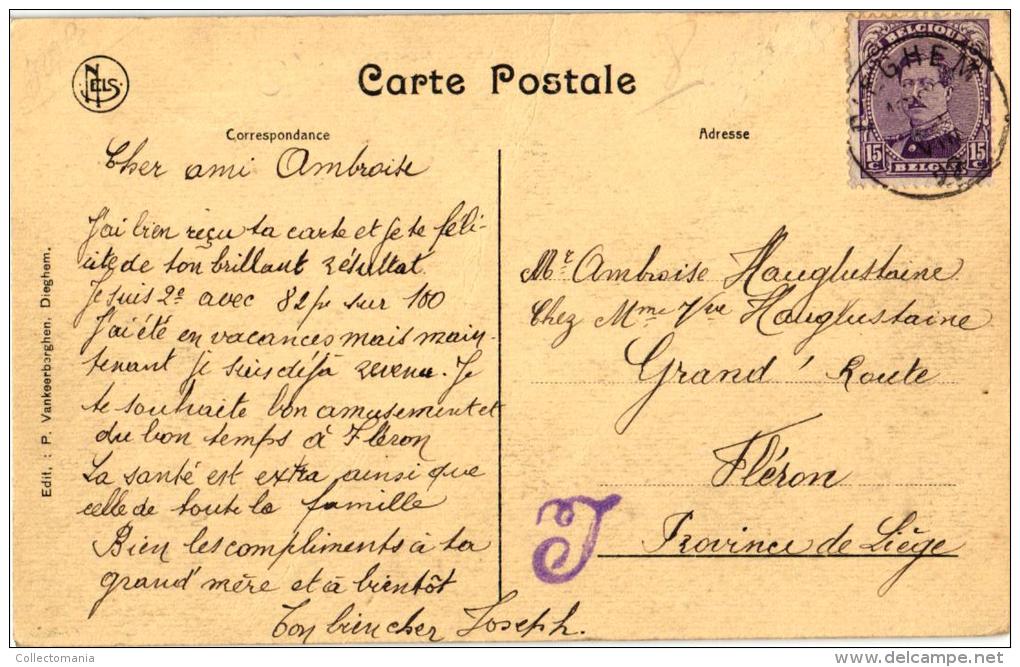 NELS
Carte Postale
Correspondance
Adresse
BELGIQUE
15 c
15 c
BELGIË
DIEGHEM
Cher ami Ambroise
J'ai bien reçu ta carte et je te féli-
cite de ton brillant résultat
Je suis 2e avec 82 pr sur 100
J'ai été en vacances mais main-
tenant je suis déjà revenu. Je
te souhaite bon amusement et
du bon temps à Fléron
La santé est extra ainsi que
celle de toute la famille
Bien les compliments à ta
grand' mère et à bientôt
Ton bien cher Joseph.
Mr Ambroise Hauglustaine
Chez Mme Vve Hauglustaine
Grand' Route
Fléron
Province de Liège
T
Edit. : P. Vankeerborghen. Dieghem.
Collectomania
delcampe.net